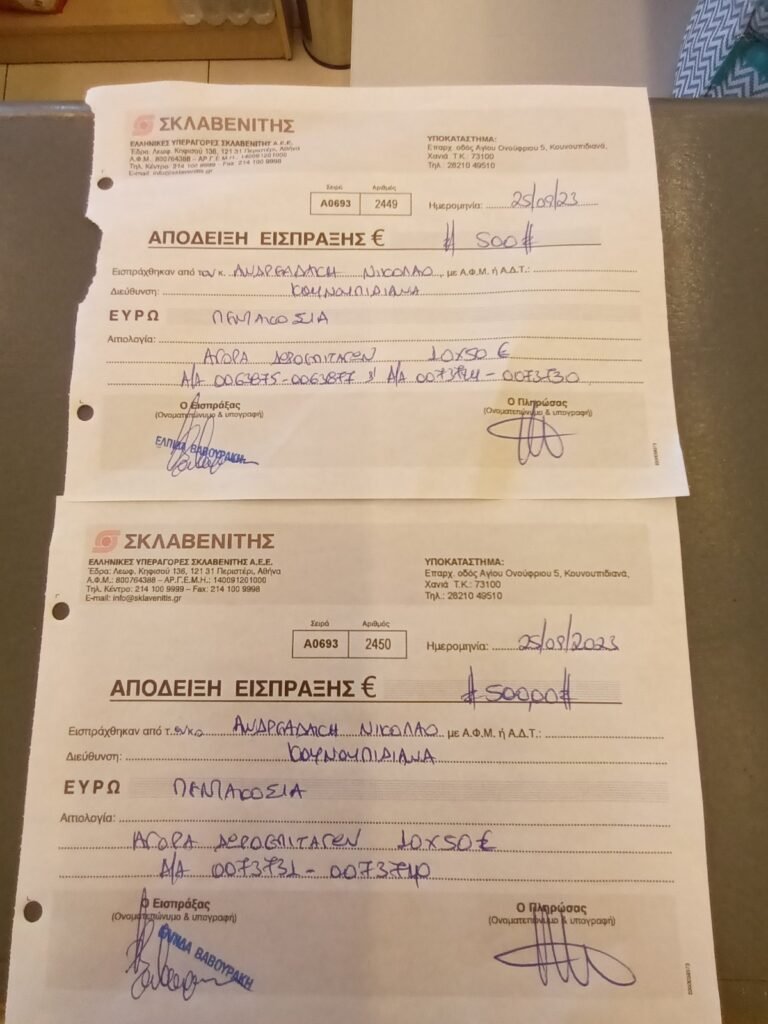 ΣΚΛΑΒΕΝΙΤΗΣ
ΕΛΛΗΝΙΚΕΣ ΥΠΕΡΑΓΟΡΕΣ ΣΚΛΑΒΕΝΙΤΗΣ Α.Ε.Ε.
Έδρα: Λεωφ. Κηφισού 136, 121 31 Περιστέρι, Αθήνα
Α.Φ.Μ.: 800764388 – ΑΡ.Γ.Ε.Μ.Η.: 140091201000
Τηλ. Κέντρο: 214 100 9999 – Fax: 214 100 9998
E-mail: info@sklavenitis.gr
ΥΠΟΚΑΤΑΣΤΗΜΑ:
Επαρχ. οδός Αγίου Ονουφρίου 5, Κουνουπιδιανά,
Χανιά Τ.Κ.: 73100
Τηλ.: 28210 49510
Σειρά Αριθμός
Α0693 2449
Ημερομηνία: 25/09/23
ΑΠΟΔΕΙΞΗ ΕΙΣΠΡΑΞΗΣ € # 500 #
Εισπράχθηκαν από τον κ. ΑΝΔΡΕΑΔΑΚΗ ΝΙΚΟΛΑΟ, με Α.Φ.Μ. ή Α.Δ.Τ.:
Διεύθυνση: ΚΟΥΝΟΥΠΙΔΙΑΝΑ
ΕΥΡΩ ΠΕΝΤΑΚΟΣΙΑ
Αιτιολογία:
ΑΓΟΡΑ ΔΩΡΟΕΠΙΤΑΓΩΝ 10x50 €
Α/Α 0063875-0063877 & Α/Α 0073724-0073730
Ο Εισπράξας
(Ονοματεπώνυμο & υπογραφή)
ΕΛΠΙΔΑ ΒΑΒΟΥΡΑΚΗ
Ο Πληρώσας
(Ονοματεπώνυμο & υπογραφή)
ΣΚΛΑΒΕΝΙΤΗΣ
ΕΛΛΗΝΙΚΕΣ ΥΠΕΡΑΓΟΡΕΣ ΣΚΛΑΒΕΝΙΤΗΣ Α.Ε.Ε.
Έδρα: Λεωφ. Κηφισού 136, 121 31 Περιστέρι, Αθήνα
Α.Φ.Μ.: 800764388 – ΑΡ.Γ.Ε.Μ.Η.: 140091201000
Τηλ. Κέντρο: 214 100 9999 – Fax: 214 100 9998
E-mail: info@sklavenitis.gr
ΥΠΟΚΑΤΑΣΤΗΜΑ:
Επαρχ. οδός Αγίου Ονουφρίου 5, Κουνουπιδιανά,
Χανιά Τ.Κ.: 73100
Τηλ.: 28210 49510
Σειρά Αριθμός
Α0693 2450
Ημερομηνία: 25/09/2023
ΑΠΟΔΕΙΞΗ ΕΙΣΠΡΑΞΗΣ € #500,00#
Εισπράχθηκαν από τον κ. ΑΝΔΡΕΑΔΑΚΗ ΝΙΚΟΛΑΟ με Α.Φ.Μ. ή Α.Δ.Τ.:
Διεύθυνση: ΚΟΥΝΟΥΠΙΔΙΑΝΑ
ΕΥΡΩ ΠΕΝΤΑΚΟΣΙΑ
Αιτιολογία:
ΑΓΟΡΑ ΔΩΡΟΕΠΙΤΑΓΩΝ 10x50 €
Α/Α 0073731-0073740
Ο Εισπράξας
(Ονοματεπώνυμο & υπογραφή)
ΕΛΠΙΔΑ ΒΑΒΟΥΡΑΚΗ
Ο Πληρώσας
(Ονοματεπώνυμο & υπογραφή)